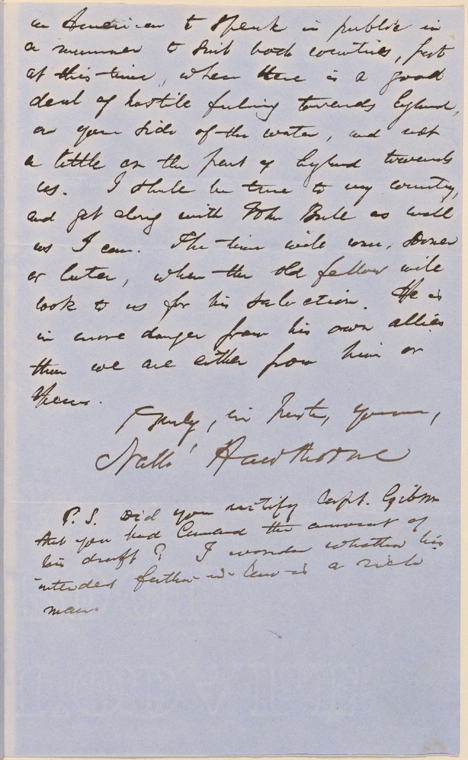 an American to speak in public in
a manner to suit both countries, just
at this time, when there is a good
deal of hostile feeling towards England,
on your side of the water, and not
a little on the part of England towards
us. I shall be true to my country,
and get along with John Bull as well
as I can. The time will come, sooner
or later, when the old fellow will
look to us for his salvation. He is
in more danger from his own allies
than we are either from him or
them.
Truly, in haste, yours,
Nath Hawthorne
P.S. Did you notify Capt. Gibson
that you had the amount of
his draft? I wonder whether his
intended father-in-law is a rich
man.